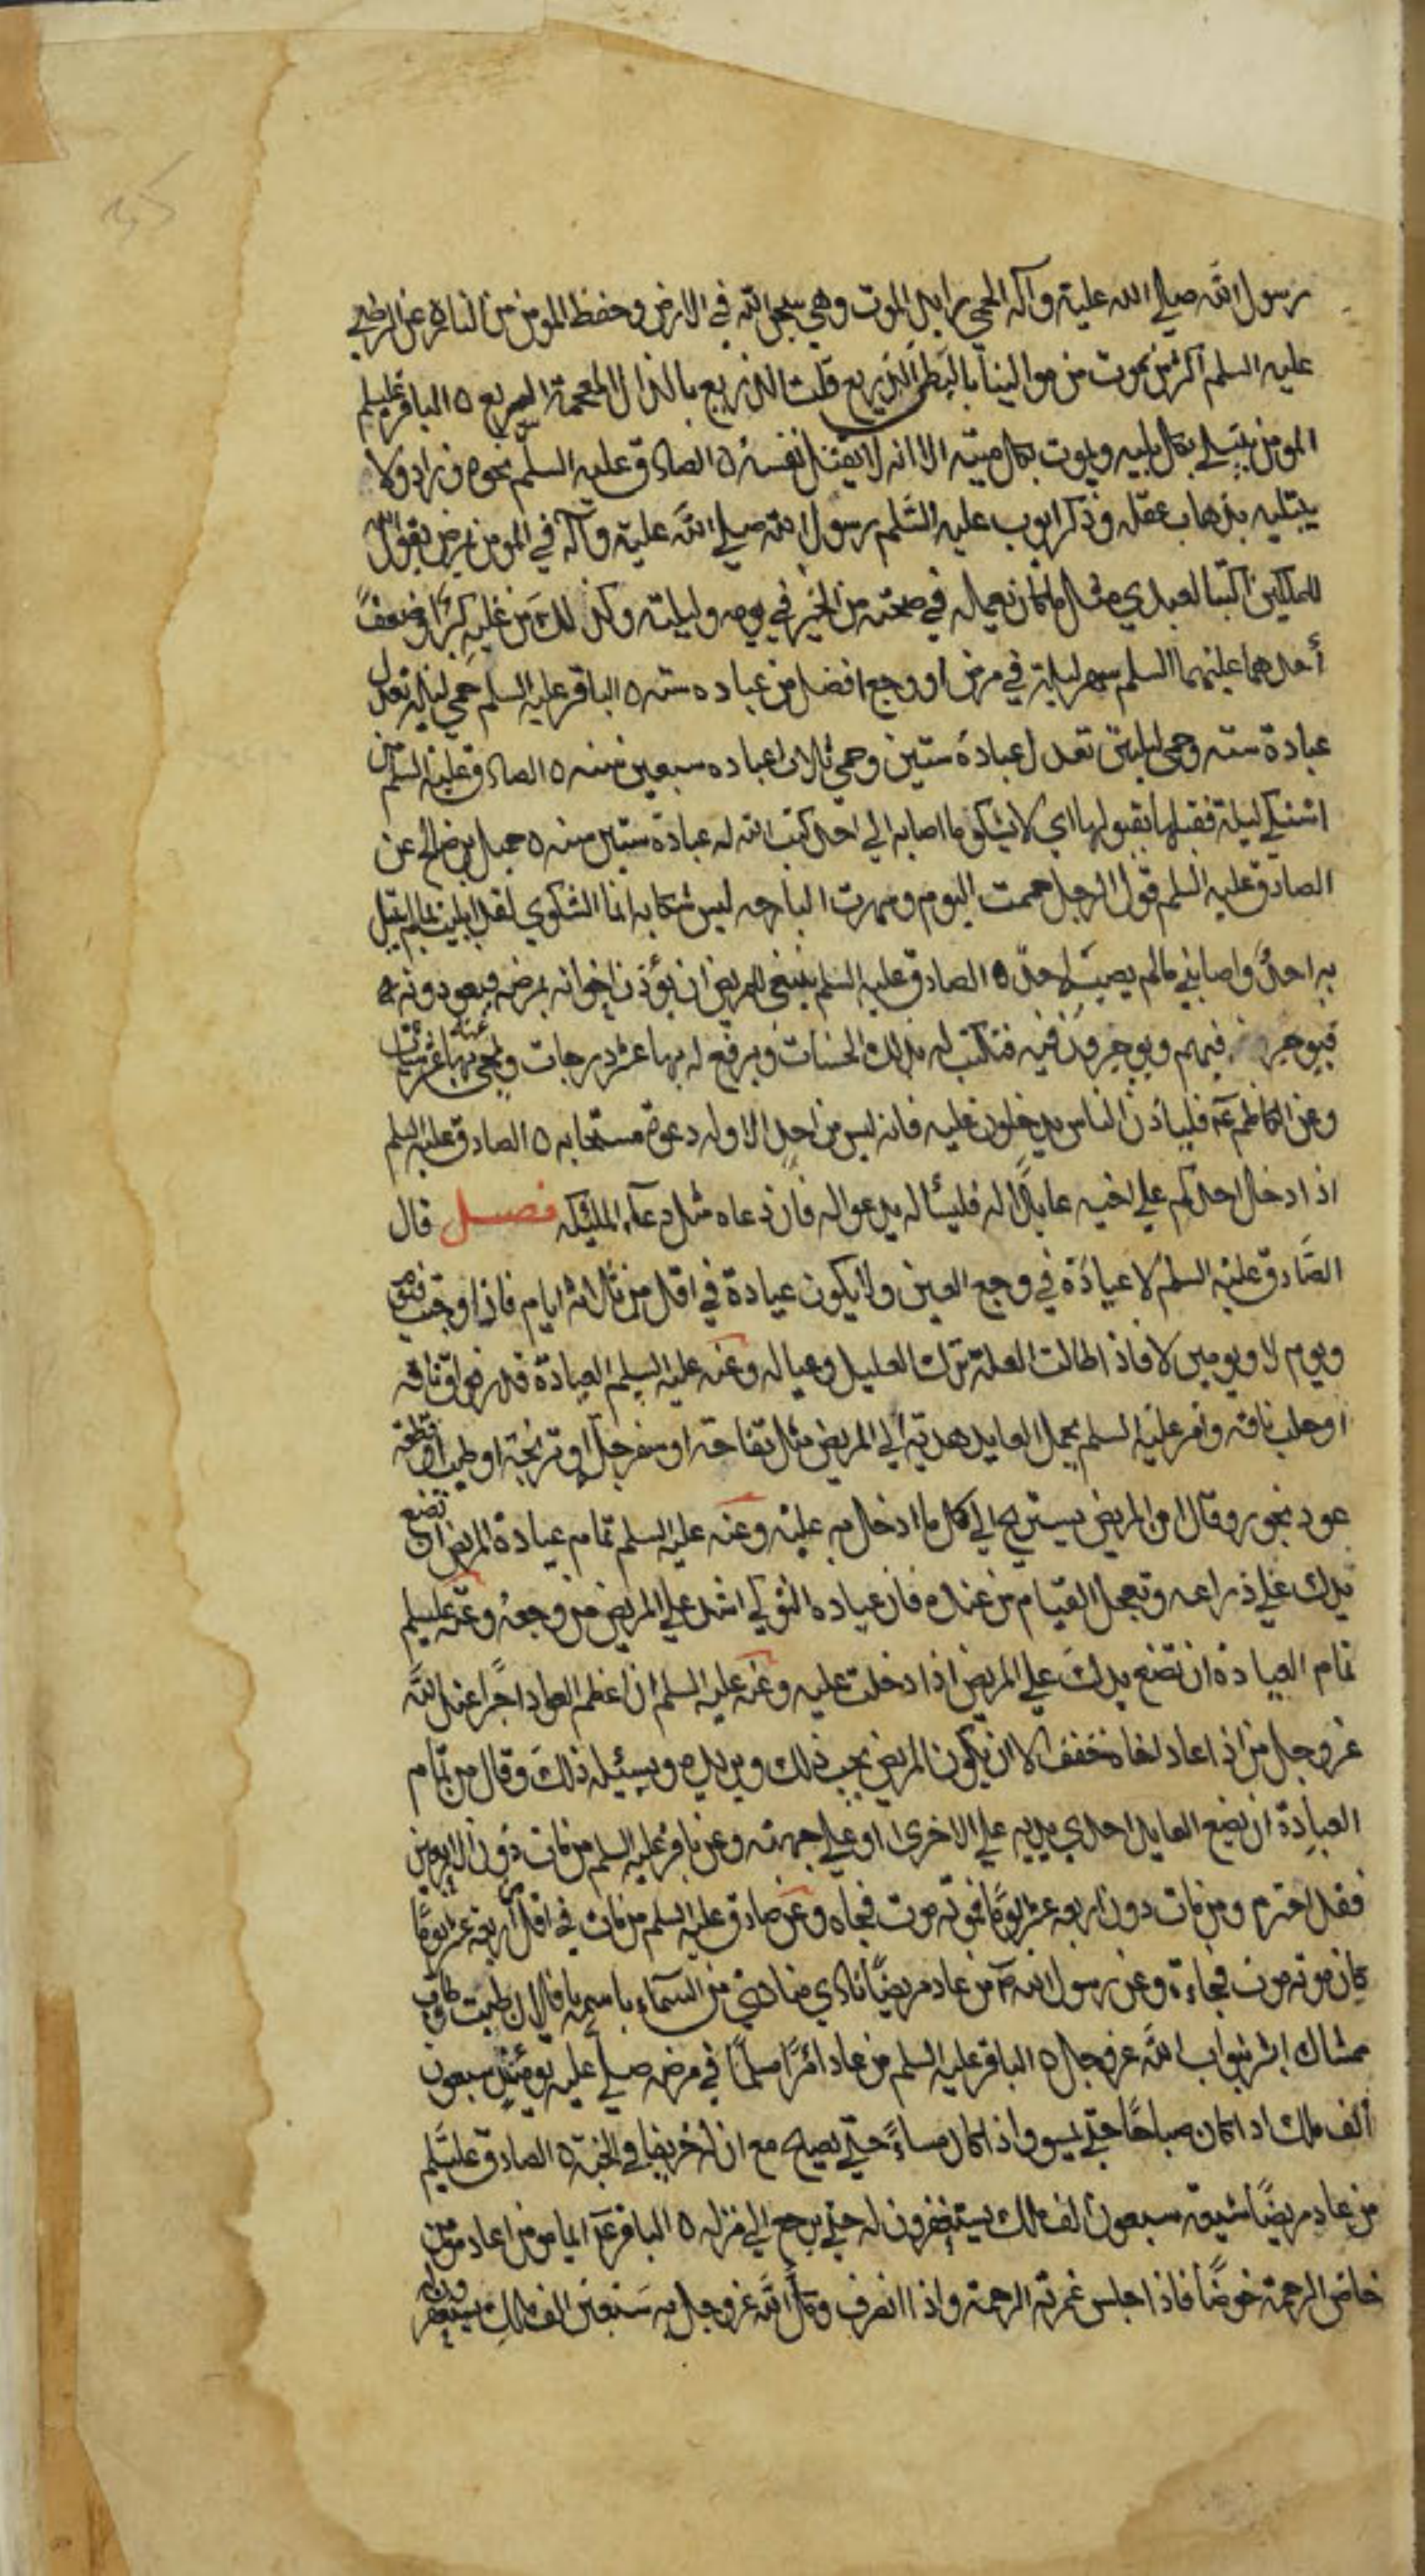 رسول الله صلى الله عليه وآله الحمي رايد الموت وهي سجن الله في الارض وحفظ المومن من النار ه عن الرضي
عليه السلم اكثر من يموت من موالينا بالبطن الذريع قلت الذريع بالذال المعجمة السريع ه الباقر عليه السلم
المومن يبتلي بكل بليه ويموت بكل ميته الا انه لا يقتل نفسه ه الصادق عليه السلم نحوه وزاد ولا
يبتليه بذهاب عقله وذكر ايوب عليه السلم رسول الله صلي الله عليه وآله في المومن يمرض يقول الله
للملكين اكتبا لعبدي مثل ما كان يعمل في صحته من الخير في يومه وليلته وكذلك من غلبه كبر او ضعف
أحدهما عليهما السلم سهر ليلة في مرض او وجع افضل من عباده سنه ه الباقر عليه السلم حمي ليلة تعدل
عبادة سنه وحمي ليلتين تعدل عبادة سنتين وحمي ثلاث عباده سبعين سنه ه الصادق عليه السلم من
اشتكي ليلة فقبلها بقبولها اي لا يشكو ما اصابه الي احد كتب الله له عبادة ستين سنه ه جميل بن صالح عن
الصادق عليه السلم قول الرجل حممت اليوم وسهرت البارحه ليس شكايه انما الشكوي لقد ابليت بما لم يبتل
به احدٌ واصابني ما لم يصيب احد ه الصادق عليه السلم ينبغي للمريض ان يؤذن اخوانه بمرضه فيعودونه
فيوجر فيهم ويوجرون فيه فتكتب له بذلك الحسنات ويرفع له بها عشر درجات ويمحي بها عنه عشر سيئات
وعن الكاظم ع فلياذن الناس يدخلون عليه فانه ليس من احد الا وله دعوة مستجابه ه الصادق عليه السلم
اذا دخل احدكم علي اخيه عايدًا له فليسأله يدعو اله فان دعاه مثل دعاء الملئكه فصل قال
الصادق عليه السلم لا عيادة في وجع العين ولا يكون عيادة في اقل من ثلاثة ايام فاذا وجبت فيوم
ويوم لا ويومين لا فاذا طالت العلة ترك العليل وعياله وعنه عليه السلم العيادة قدر فواق ناقه
او حلب ناقه وامر عليه السلم بحمل العايد هدية الي المريض مثل تفاحة او سفرجلة او ترنجة او طيب او قطعة
عود بخور وقال ان المريض يستريح الي كل ما ادخل به عليه وعنه عليه السلم تمام عيادة المريض ان تضع
يدك علي ذراعه وتعجل القيام من عنده فان عياده النوكي اشد علي المريض من وجعه وعنه عليه السلم
تمام العيادة ان تضع يدك علي المريض اذا دخلت عليه وعنه عليه السلم ان اعظم العواد اجرًا عند الله
عز وجل من اذا عاد اخاه خفف الا ان يكون المريض يحب ذلك ويريده ويسئله ذلك وقال من تمام
العيادة ان يضع العايد احدي يديه علي الاخري او علي جبهته وعن باقر عليه السلم من مات دون الاربعين
فقد اخترم ومن مات دون اربعه عشر يومًا فموته موت فجاه وعن صادق عليه السلم من مات في اقل اربعة عشر يومًا
كان موته موت فجاءة وعن رسول الله ص من عاد مريضًا نادي مناد من السماء باسمه يا فلان طبت وطاب
ممشاك ابشر بثواب الله عز وجل ه الباقر عليه السلم من عاد امرًا مسلمًا في مرضه صلي عليه يومئذ سبعون
ألف ملك اذا كان صباحًا حتي يمسو واذا كان مساءً حتي يصبح مع ان له خريفا في الجنة ه الصادق عليه السلم
من عاد مريضًا شيعه سبعون الف ملك يستغفرون له حتي يرجع الي منزله ه الباقر ع ايما مومن عاد مومن
خاض الرحمة خوضًا فاذا جلس غمرته الرحمة واذا انصرف وكل الله عز وجل به سبعين الف ملك يستغفرون له